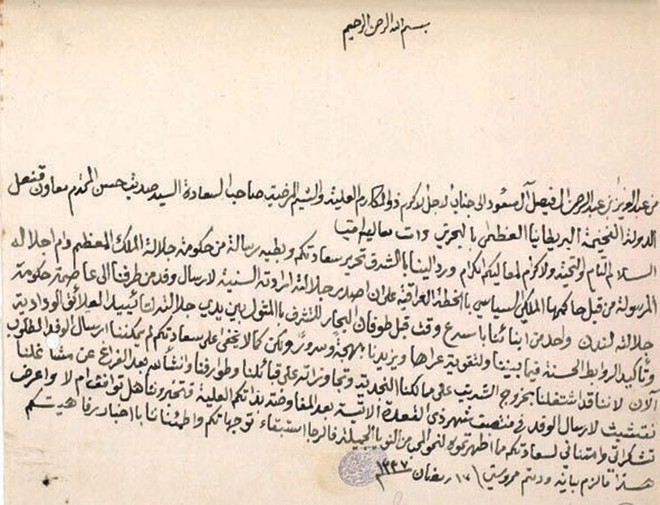 بسم الله الرحمن الرحيم
من عبد العزيز بن عبد الرحمن الفيصل آل سعود الى جناب الاجل الاكرم ذو المكارم العلية والشيم المرضية صاحب السعادة السيد صديق حسن المحترم معاون قنصل
الدولة الفخيمة البريطانيا العظمى بالبحرين دامت معاليه امين
السلام التام والتحية والاكرام لمعاليكم الكرام ورد الينا بالشرق تحرير سعادتكم وبطيه رسالة من حكومة جلالة الملك المعظم دام اجلاله
المرسولة من قبل حاكمها الملكي السياسي بالخطة العراقية على ان اصدر جلالته ارادته السنية لارسال وفد من طرفنا الى عاصمة حكومة
جلالته لندن واحد من ابنائنا باسرع وقت قبل طوفان البحار للتشرف بالمثول بين يدي جلالته لتأييد العلائق الودادية
وتأكيد الروابط الحسنة فيما بيننا ولتقوية عراها ويزيدنا بهجة وسرور ولكن كما لا يخفى على سعادتكم لم يمكننا ارسال الوفد المطلوب
الآن لاننا قد اشتغلنا بخروج الشريف على ممالكنا النجدية وتجاوزاته على قبائلنا وطوارفنا وانشاالله بعد الفراغ عن مشاغلنا
نتشبث لارسال الوفد في منتصف شهر ذي القعدة الآتية بعد المفاوضة بذاتكم العلية فتخبرونا هل توافق ام لا واعرض
تشكراتي وامتناني لسعادتكم مما اظهرتموه لنحو المحب من النوايا الجميلة فالرجا استبقاء توجهاتكم واطمئناننا باخبار رفاهيتكم
هذا ما لزم بيانه ودمتم محروسين ١٧ رمضان ١٣٣٧